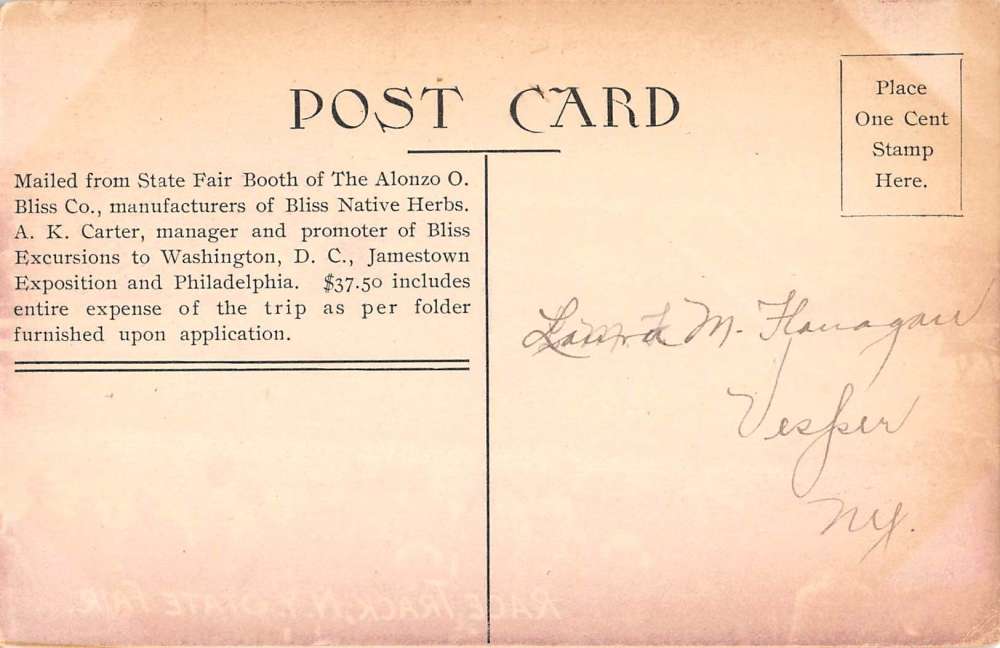 POST CARD
Place
One Cent
Stamp
Here.
Mailed from State Fair Booth of The Alonzo O.
Bliss Co., manufacturers of Bliss Native Herbs.
A. K. Carter, manager and promoter of Bliss
Excursions to Washington, D. C., Jamestown
Exposition and Philadelphia. $37.50 includes
entire expense of the trip as per folder
furnished upon application.
M. Flanagan
Vesper
NY.
RACE TRACK, N.Y. STATE FAIR.